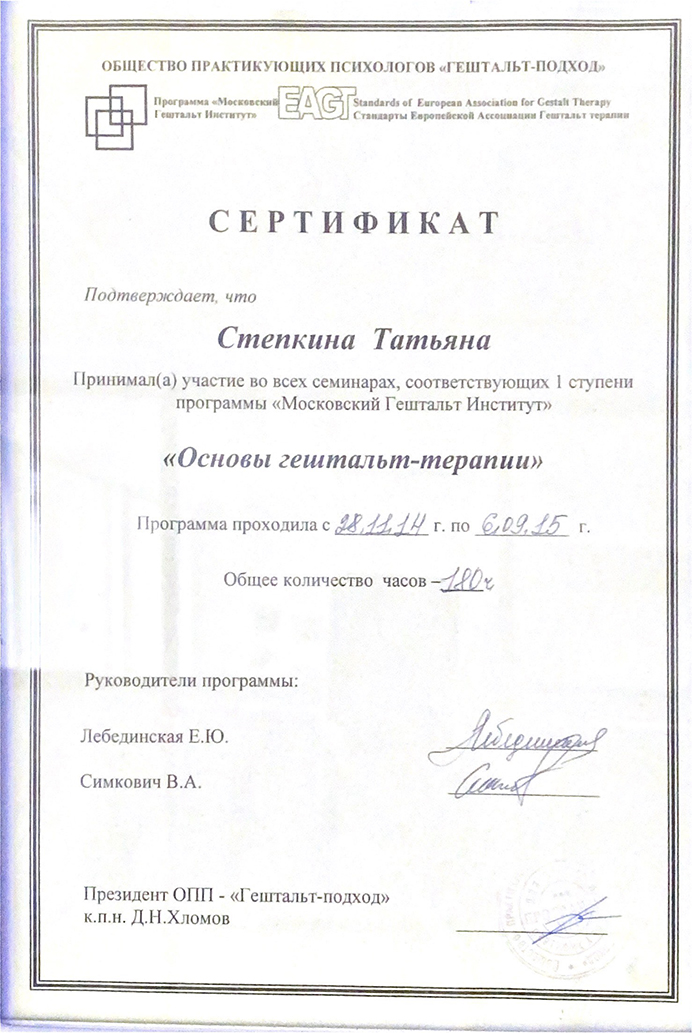 ОБЩЕСТВО ПРАКТИКУЮЩИХ ПСИХОЛОГОВ «ГЕШТАЛЬТ-ПОДХОД»
Программа «Московский
Гештальт Институт»
EAGT
Standards of European Association for Gestalt Therapy
Стандарты Европейской Ассоциации Гештальт терапии
СЕРТИФИКАТ
Подтверждает, что
Степкина Татьяна
Принимал(а) участие во всех семинарах, соответствующих 1 ступени
программы «Московский Гештальт Институт»
«Основы гештальт-терапии»
Программа проходила с 28.11.14 г. по 6.09.15 г.
Общее количество часов – 180ч
Руководители программы:
Лебединская Е.Ю.
Симкович В.А.
Президент ОПП - «Гештальт-подход»
к.п.н. Д.Н.Хломов